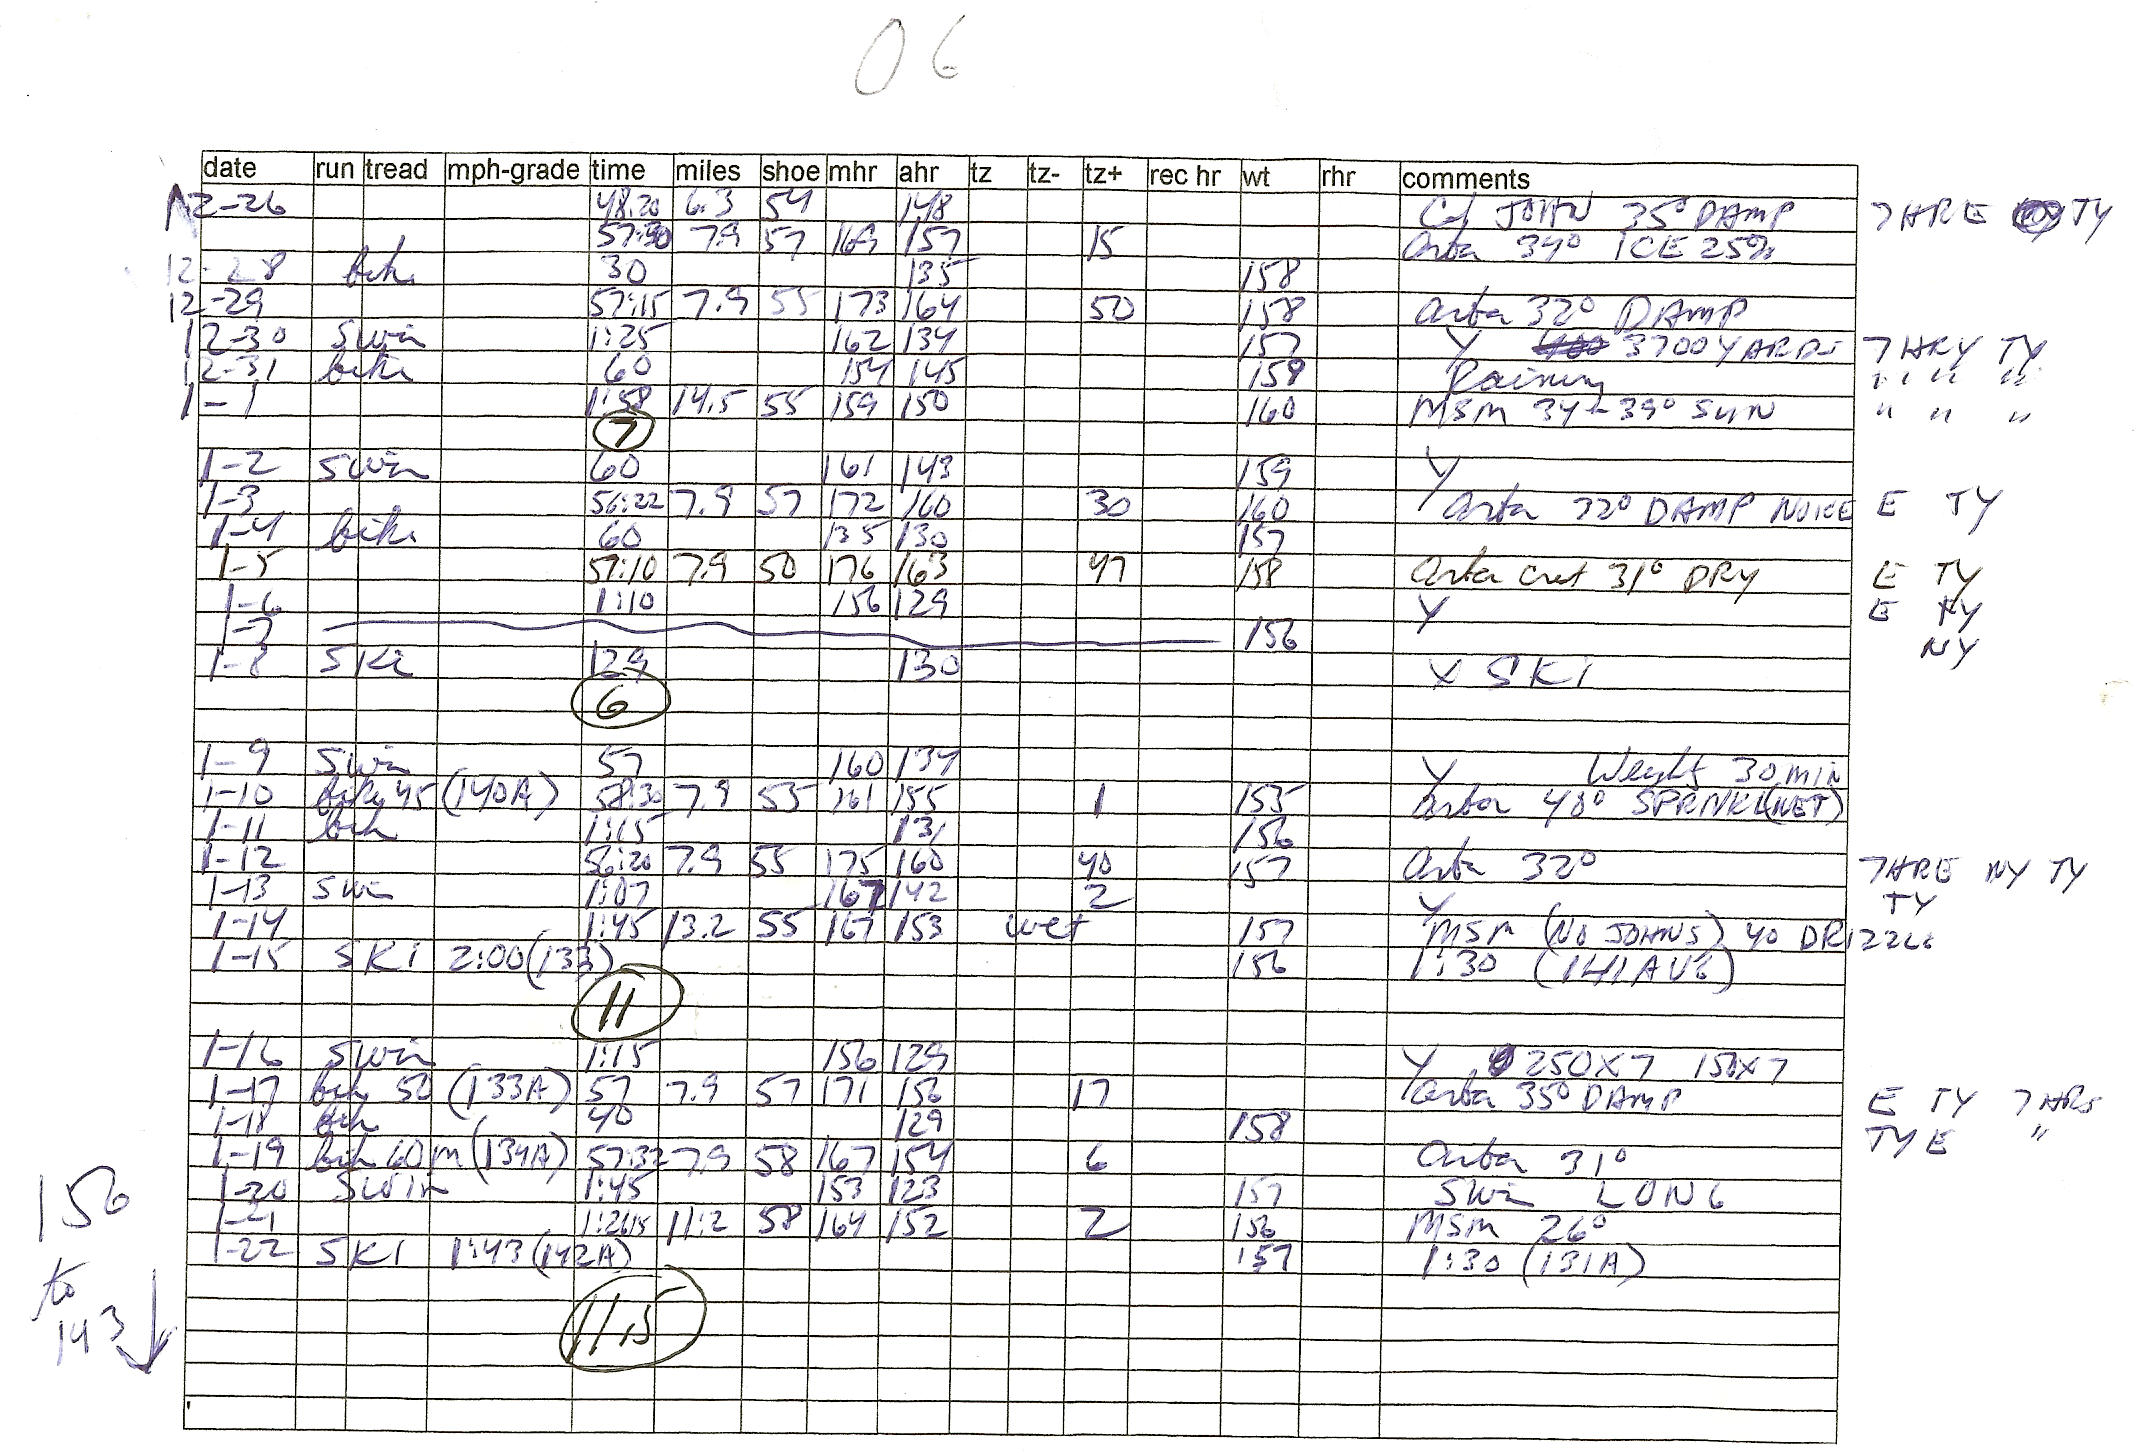 06
date run tread mph-grade time miles shoe mhr ahr tz tz- tz+ rec hr wt rhr comments
12-26 48:20 6.3 54 148 JOHN 35° DAMP TY
57:30 7.9 57 169 157 15 34° ICE 25%
12-28 bike 30 135 158
12-29 57:15 7.9 55 173 164 50 158 32° DAMP
12-30 Swim 1:25 162 134 157 Y 3700 YARDS TY
12-31 bike 60 154 145 159 Raining " " "
1-1 1:58 14.5 55 159 150 160 MSM 34-39° SUN " " "
7
1-2 swim 60 161 143 159 Y
1-3 56:22 7.9 57 172 160 30 160 DAMP E TY
1-4 bike 60 135 130 157
1-5 57:10 7.9 50 176 163 47 158 31° DRY E TY
1-6 1:10 156 129 Y E
1-7 156 NY
1-8 SKi 129 130 X SKI
6
1-9 Swim 57 160 134 Y Weight 30 min
1-10 bike 45 (140A) 58:30 7.9 55 161 155 1 155 40° (WET)
1-11 bik 1:15 131 156
1-12 56:20 7.9 55 175 160 40 157 32° NY TY
1-13 swi 1:07 167 142 2 Y TY
1-14 1:45 13.2 55 167 153 wet 157 MSM (NO JOHNS) 40 DRIZZLE
1-15 SKI 2:00 (133) 156 1:30 (141 AVG)
11
1-16 Swim 1:15 156 129 Y 250X7 150X7
1-17 bik (133A) 57 7.9 57 171 156 17 35° DAMP E TY
1-18 bik 40 129 158 TYE "
1-19 bik 60 m (134A) 57:32 7.9 58 167 154 6 31°
1-20 Swim 1:45 153 123 157 Swim LONG
1-21 11.2 58 164 152 2 156 MSM 26°
1-22 SKI 1:43 (142A) 157 1:30 (131A)
11.5
156
to
143